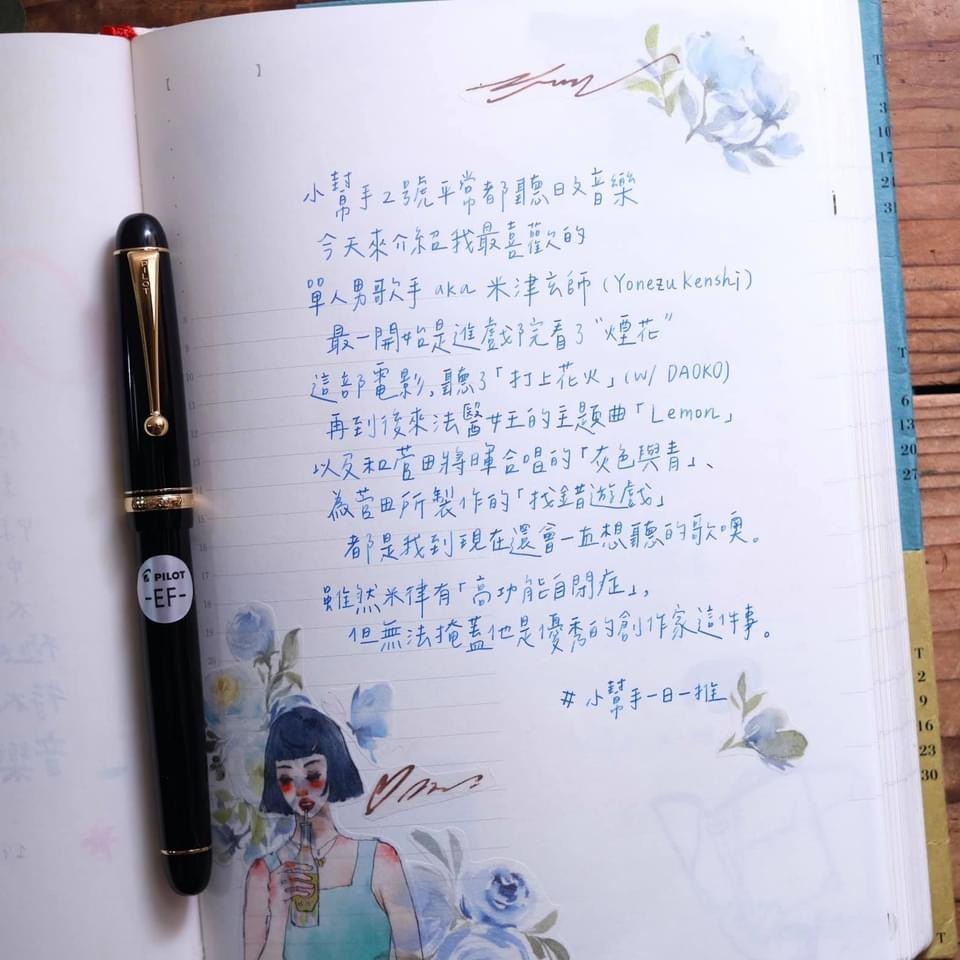 小幫手2號平常都聽日文音樂
今天來介紹我最喜歡的
單人男歌手 aka 米津玄師 (Yonezu Kenshi)
最一開始是進戲院看了"煙花"
這部電影,聽了「打上花火」(w/ DAOKO)
再到後來法醫女王的主題曲「Lemon」
以及和菅田將暉合唱的「灰色與青」、
為菅田所製作的「找錯遊戲」
都是我到現在還會一直想聽的歌噢。
雖然米律有「高功能自閉症」,
但無法掩蓋他是優秀的創作家這件事。
#小幫手一日一推
PILOT
PILOT
-EF-
8
9
10
11
12
13
14
15
16
17
18
19
20
T
3
10
17
24
31
T
6
13
20
27
T
2
9
16
23
30
T